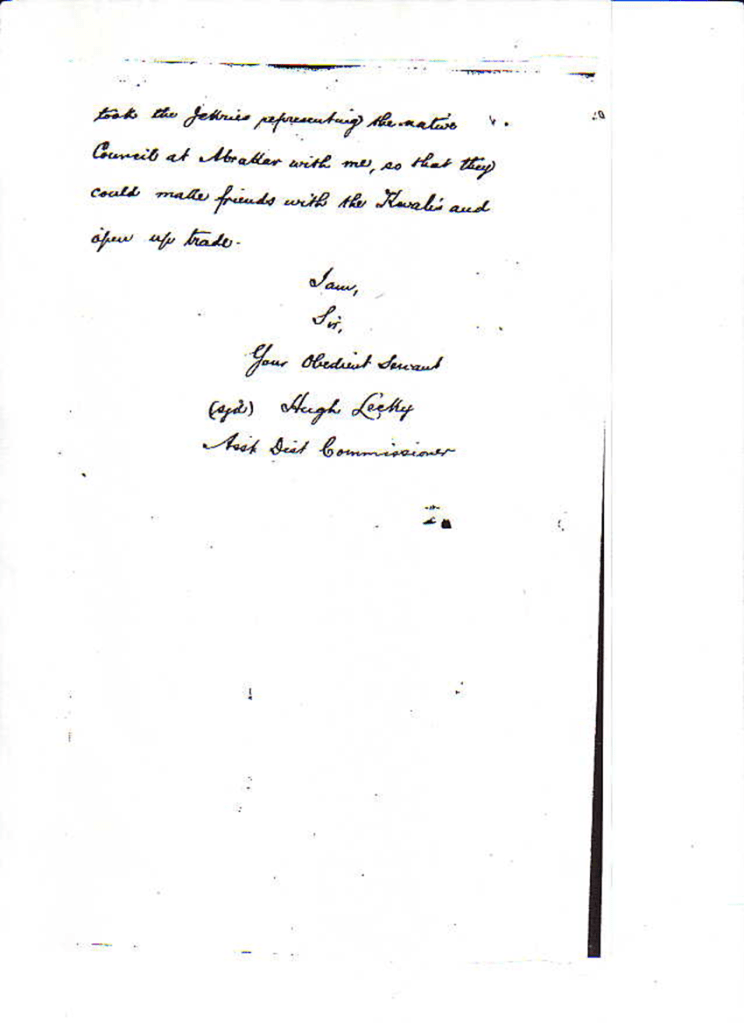 took the Jekries representing the native
Council at Abrakar with me, so that they
could make friends with the Kwale's and
open up trade.
I am,
Sir,
Your Obedient Servant
(sgd) Hugh Lecky
Asst Dist Commissioner